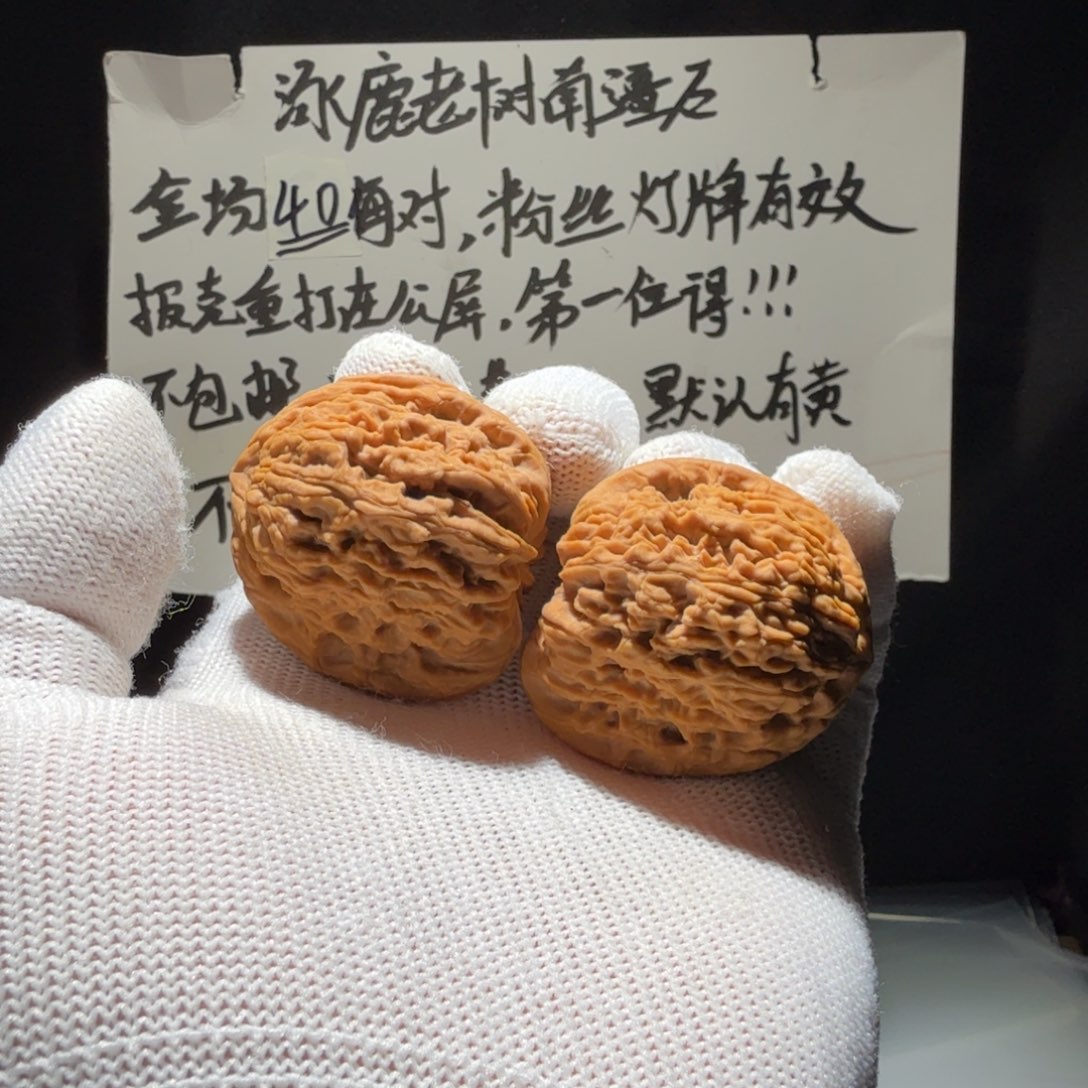 涿鹿老树南疆石
全场40每对,粉丝灯牌有效
报克重打在公屏,第一位得!!!
不包邮 默认有黄
不